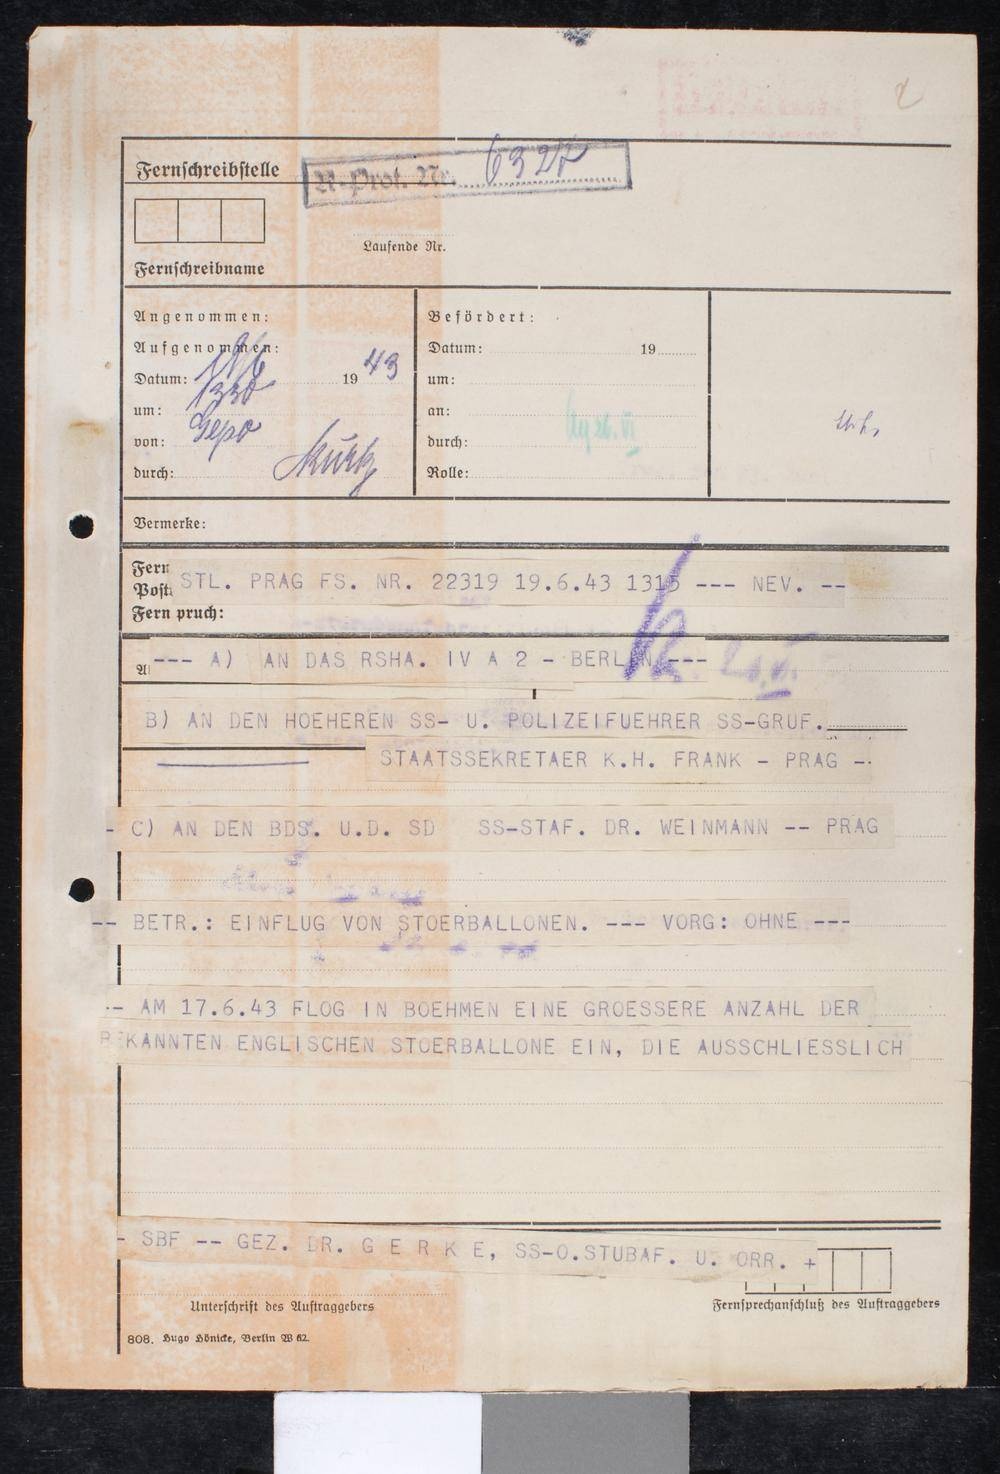 Fernschreibstelle
R-Prot. Nr.
Laufende Nr.
Fernschreibname
Angenommen:
Aufgenommen:
Datum: 19 43
um: 1330
von: Gepo
durch:
Befördert:
Datum: 19
um:
an:
durch:
Rolle:
Vermerke:
Fern
Post
Fern pruch:
STL. PRAG FS. NR. 22319 19.6.43 1315 --- NEV. --
--- A) AN DAS RSHA. IV A 2 - BERLIN ---
B) AN DEN HOEHEREN SS- U. POLIZEIFUEHRER SS-GRUF.
STAATSSEKRETAER K.H. FRANK - PRAG -.
- C) AN DEN BDS. U.D. SD SS-STAF. DR. WEINMANN -- PRAG
-- BETR.: EINFLUG VON STOERBALLONEN. --- VORG: OHNE ---
-- AM 17.6.43 FLOG IN BOEHMEN EINE GROESSERE ANZAHL DER
BEKANNTEN ENGLISCHEN STOERBALLONE EIN, DIE AUSSCHLIESSLICH
- SBF -- GEZ. DR. G E R K E, SS-O.STUBAF. U. ORR. +
Unterschrift des Auftraggebers
Fernsprechanschluß des Auftraggebers
808. Hugo Hönicke, Berlin W 62.